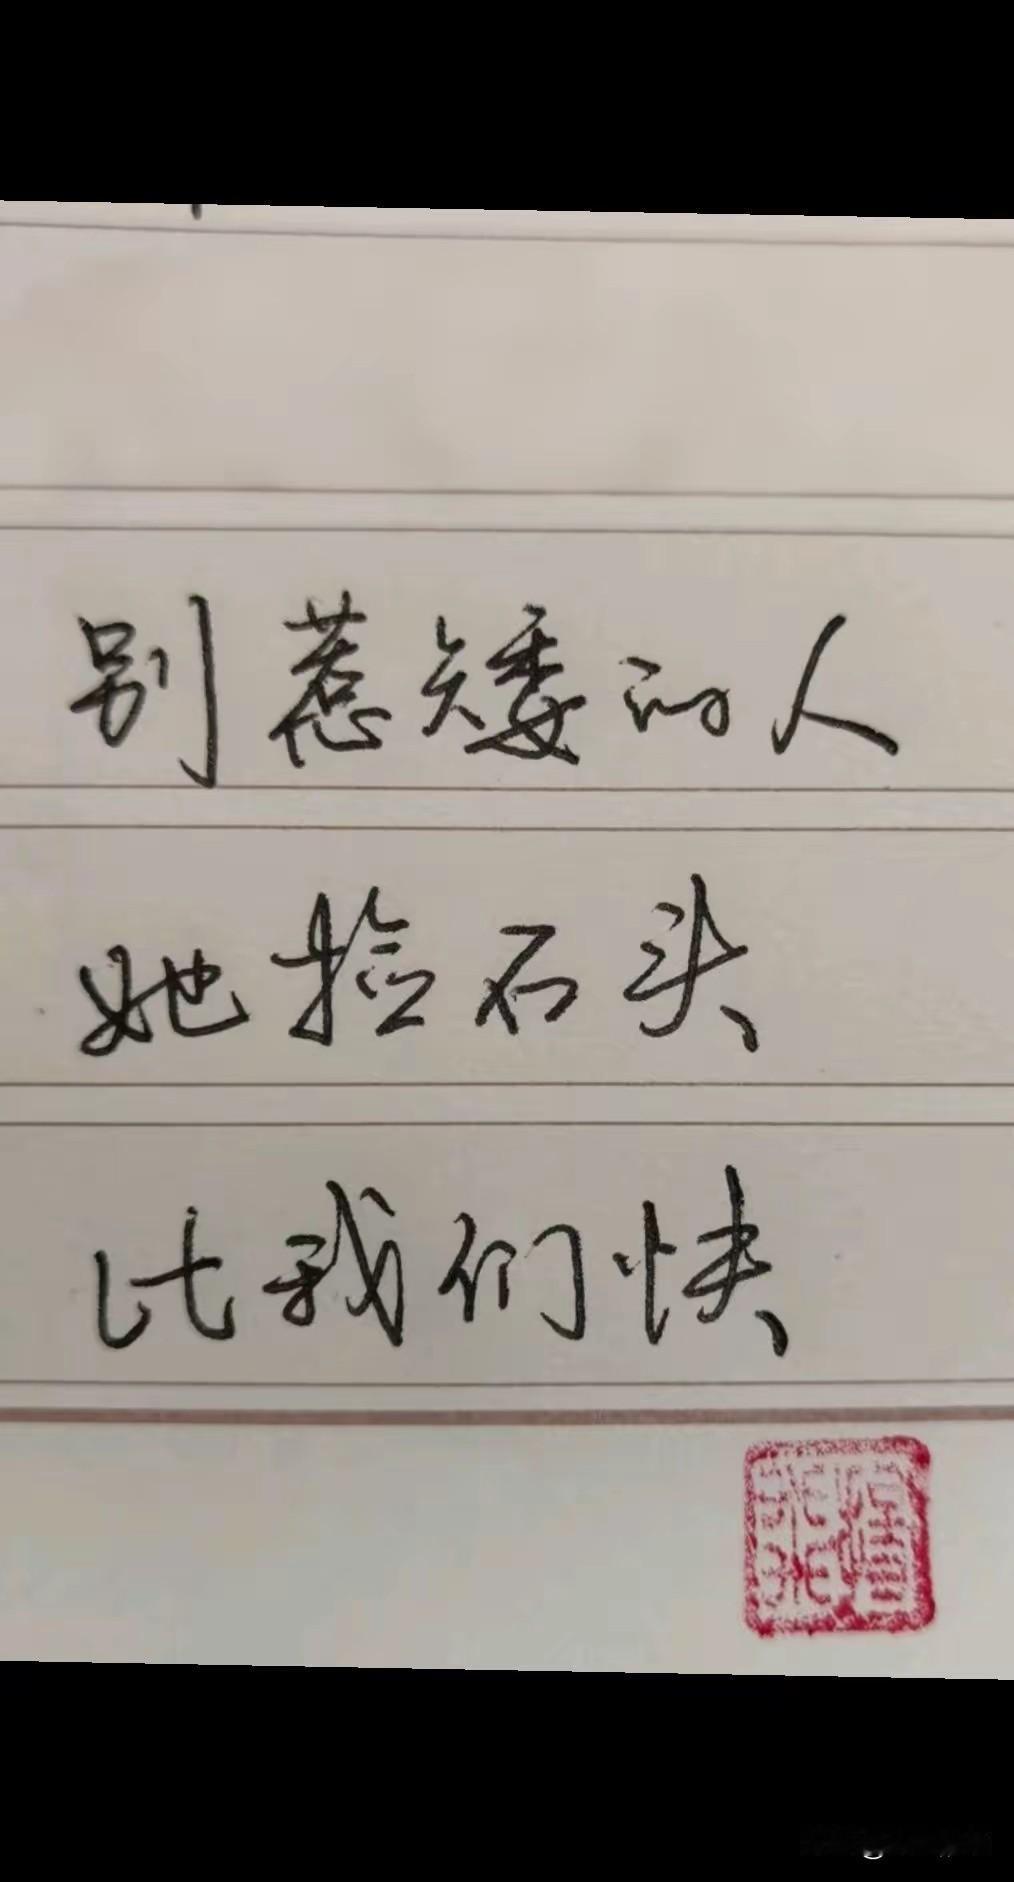 别惹矮的人
她捡石头
比我们快